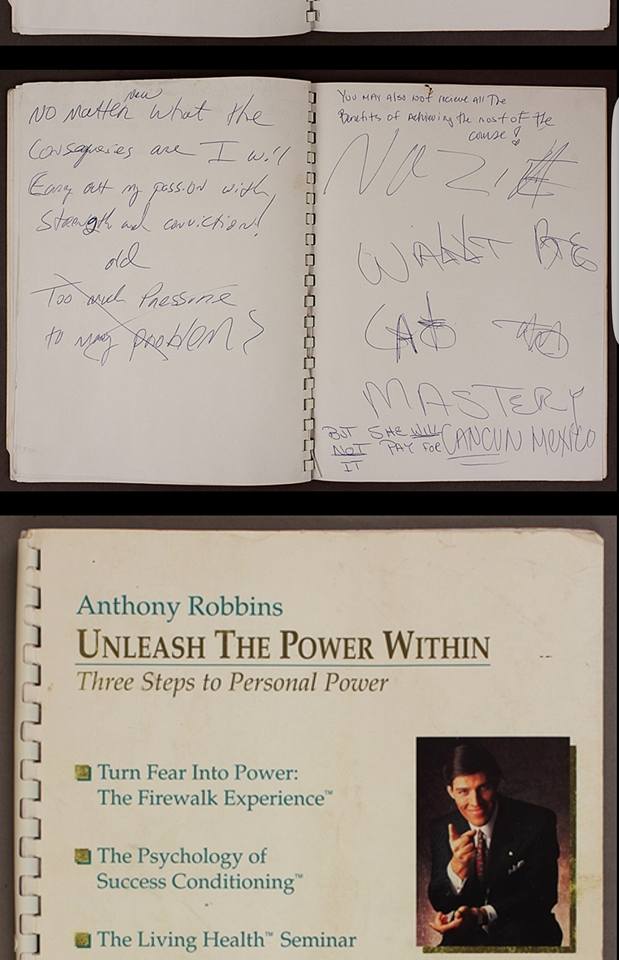 new
No matter what the
Consaquences are I will
Carry out my passion with
Strength and conviction!
old
Too much Pressure
to my problem?
You may also not recieve all The
Benefits of Achieving the most of the
course!
MASTERY
BUT SHE WILL CANCUN MEXICO
NOT PAY FOR
IT
Anthony Robbins
UNLEASH THE POWER WITHIN
Three Steps to Personal Power
Turn Fear Into Power:
The Firewalk Experience™
The Psychology of
Success Conditioning™
The Living Health™ Seminar